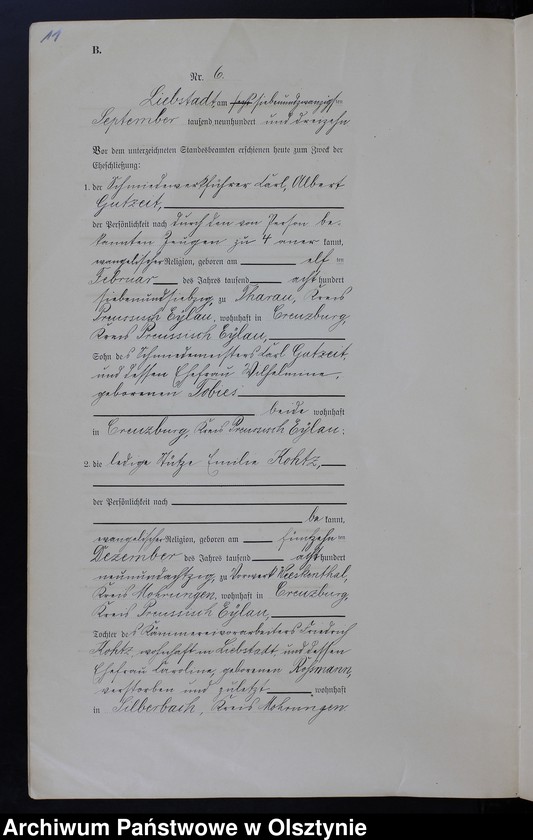 11
B.
Nr. 6.
Liebstadt, am siebenundzwanzigsten
September tausend neunhundert und dreizehn
Vor dem unterzeichneten Standesbeamten erschienen heute zum Zweck der
Eheschließung:
1. der Schmiedewerkführer Karl, Albert
Gutzeit,
der Persönlichkeit nach durch den von Person be-
kannten Zeugen zu 4 aner kannt,
evangelischer Religion, geboren am elf ten
Februar des Jahres tausend acht hundert
siebenundsiebzig, zu Tharau, Kreis
Preussisch Eylau, wohnhaft in Creuzburg,
Kreis Preussisch Eylau,
Sohn des Schmiedemeisters Karl Gutzeit,
und dessen Ehefrau Wilhelmine,
geborenen Tobies
beide wohnhaft
in Creuzburg, Kreis Preussisch Eylau.
2. die ledige Stütze Emilie Kohtz,
der Persönlichkeit nach
be kannt,
evangelischer Religion, geboren am fünfzehn ten
Dezember des Jahres tausend acht hundert
neunundachtzig, zu Vorwerk
Kreis Mohrungen, wohnhaft in Creuzburg,
Kreis Preussisch Eylau,
Tochter des Kämmereivorarbeiters Friedrich
Kohtz, wohnhaft in Liebstadt, und dessen
Ehefrau Karoline, geborenen Roßmann,
verstorben und zuletzt wohnhaft
in Silberbach, Kreis Mohrungen.
Archiwum Państwowe w Olsztynie